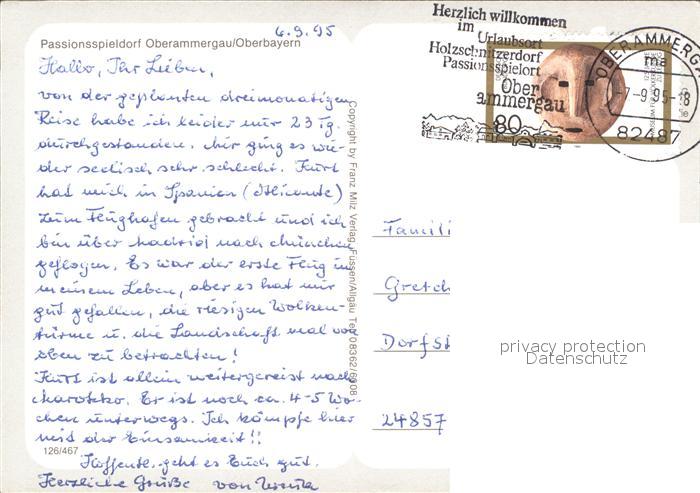 6.9.95
Passionsspieldorf Oberammergau/Oberbayern
Hallo, Ihr Lieben,
von der geplanten dreimonatigen
Reise habe ich leider nur 23 Tg.
durchgestanden. Mir ging es wie-
der seelisch sehr schlecht. Kurt
hat mich in Spanien (Alicante)
zum Flughafen gebracht und ich
bin über Madrid nach München
geflogen. Es war der erste Flug in
meinem Leben, aber es hat mir
gut gefallen, die riesigen Wolken-
türme u. die Landschaft mal von
oben zu betrachten!
Kurt ist allein weitergereist nach
Marokko. Er ist noch ca. 4-5 Wo-
chen unterwegs. Ich kämpfe hier
mit der Einsamkeit!!
Hoffentl. geht es Euch gut.
Herzliche Grüße von Ursula
126/467
Copyright by Franz Milz Verlag, Füssen/Allgäu Tel. 08362/6308
Herzlich willkommen
im
Urlaubsort
Holzschnitzerdorf
Passionsspielort
Ober
ammergau
80
OBERAMMERGA
ma
-7.-9.95-18
82487
Famili
Gretch
Dorfst
24857
privacy protection
Datenschutz